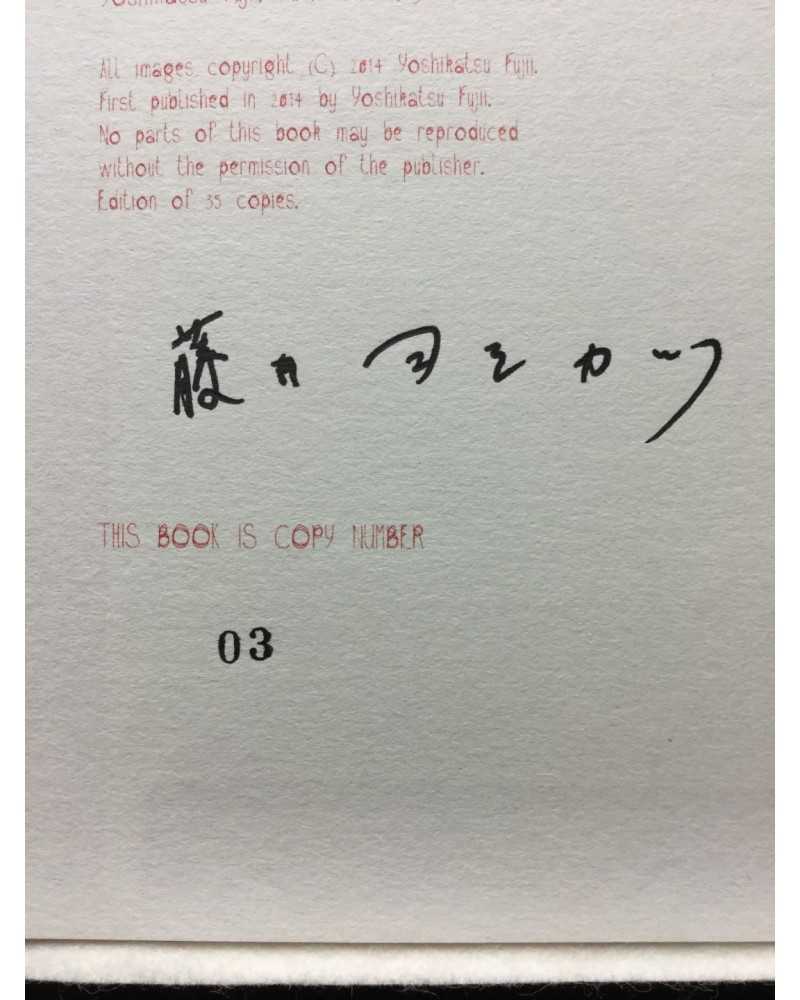 All images copyright (C) 2014 Yoshikatsu Fujii.
First published in 2014 by Yoshikatsu Fujii.
No parts of this book may be reproduced
without the permission of the publisher.
Edition of 35 copies.
藤井ヨシカツ
THIS BOOK IS COPY NUMBER
03